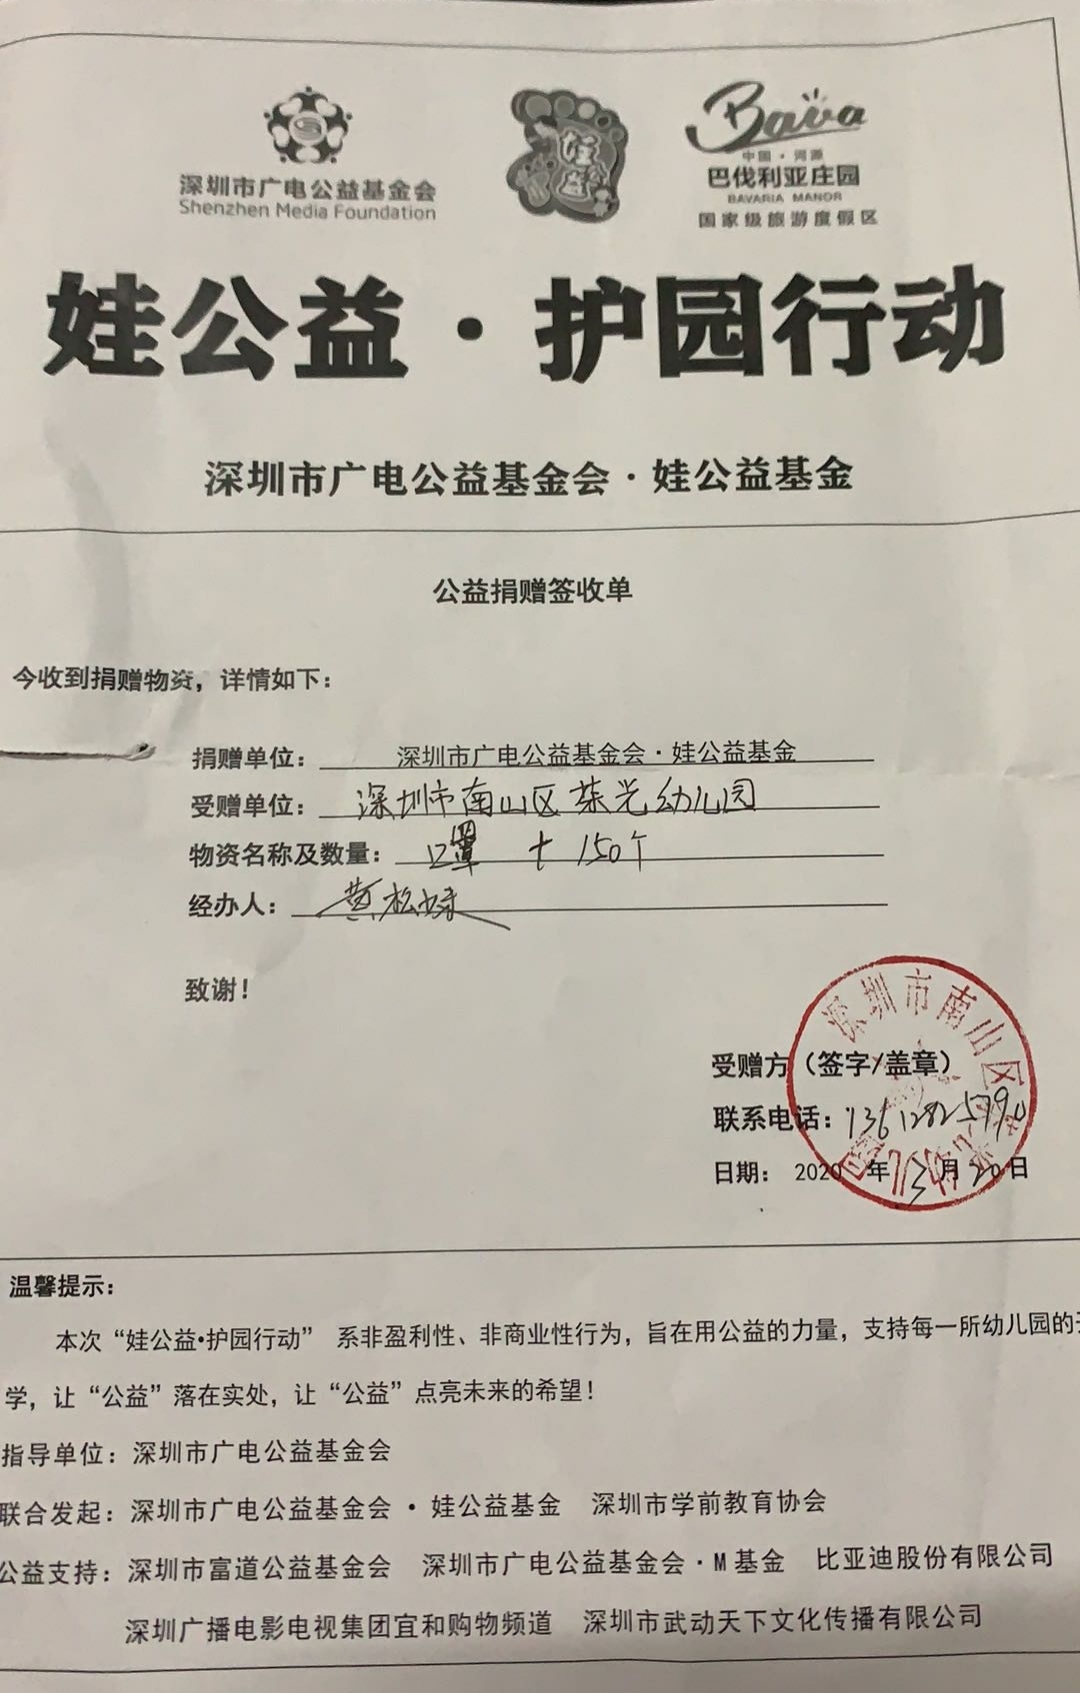 深圳市广电公益基金会
Shenzhen Media Foundation
娃公益
Bava
中国·河源
巴伐利亚庄园
BAVARIA MANOR
国家级旅游度假区
娃公益·护园行动
深圳市广电公益基金会·娃公益基金
公益捐赠签收单
今收到捐赠物资，详情如下：
捐赠单位：深圳市广电公益基金会·娃公益基金
受赠单位：深圳市南山区 幼儿园
物资名称及数量：口罩 150个
经办人：黄松
致谢！
深圳市南山区 幼儿园
受赠方（签字/盖章）
联系电话：
日期：2020年3月20日
温馨提示：
本次“娃公益•护园行动” 系非盈利性、非商业性行为，旨在用公益的力量，支持每一所幼儿园的
学，让“公益”落在实处，让“公益”点亮未来的希望！
指导单位：深圳市广电公益基金会
联合发起：深圳市广电公益基金会·娃公益基金 深圳市学前教育协会
公益支持：深圳市富道公益基金会 深圳市广电公益基金会·M基金 比亚迪股份有限公司
深圳广播电影电视集团宜和购物频道 深圳市武动天下文化传播有限公司